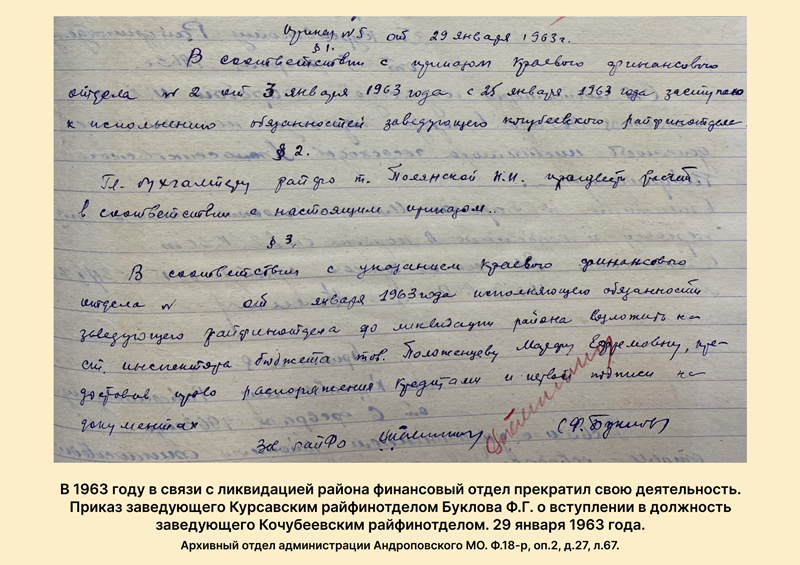 Приказ №5 от 29 января 1963 г.
§ 1.
В соответствии с приказом краевого финансового
отдела № 2 от 3 января 1963 года с 25 января 1963 года заступаю
к исполнению обязанностей заведующего Кочубеевского райфинотдела
§ 2.
Гл. бухгалтеру райфо т. Полянской Н.И. произвести расчет
в соответствии с настоящим приказом..
§ 3.
В соответствии с указанием краевого финансового
отдела № от января 1963 года исполняющего обязанности
заведующего райфинотдела до ликвидации района возложить на
ст. инспектора бюджета тов. Положенцеву Марфу Ефремовну, пре-
доставив право распоряжения кредитами и первой подписи на
документах
Зав. райФО (Ф. Буклов)
В 1963 году в связи с ликвидацией района финансовый отдел прекратил свою деятельность.
Приказ заведующего Курсавским райфинотделом Буклова Ф.Г. о вступлении в должность
заведующего Кочубеевским райфинотделом. 29 января 1963 года.
Архивный отдел администрации Андроповского МО. Ф.18-р, оп.2, д.27, л.67.